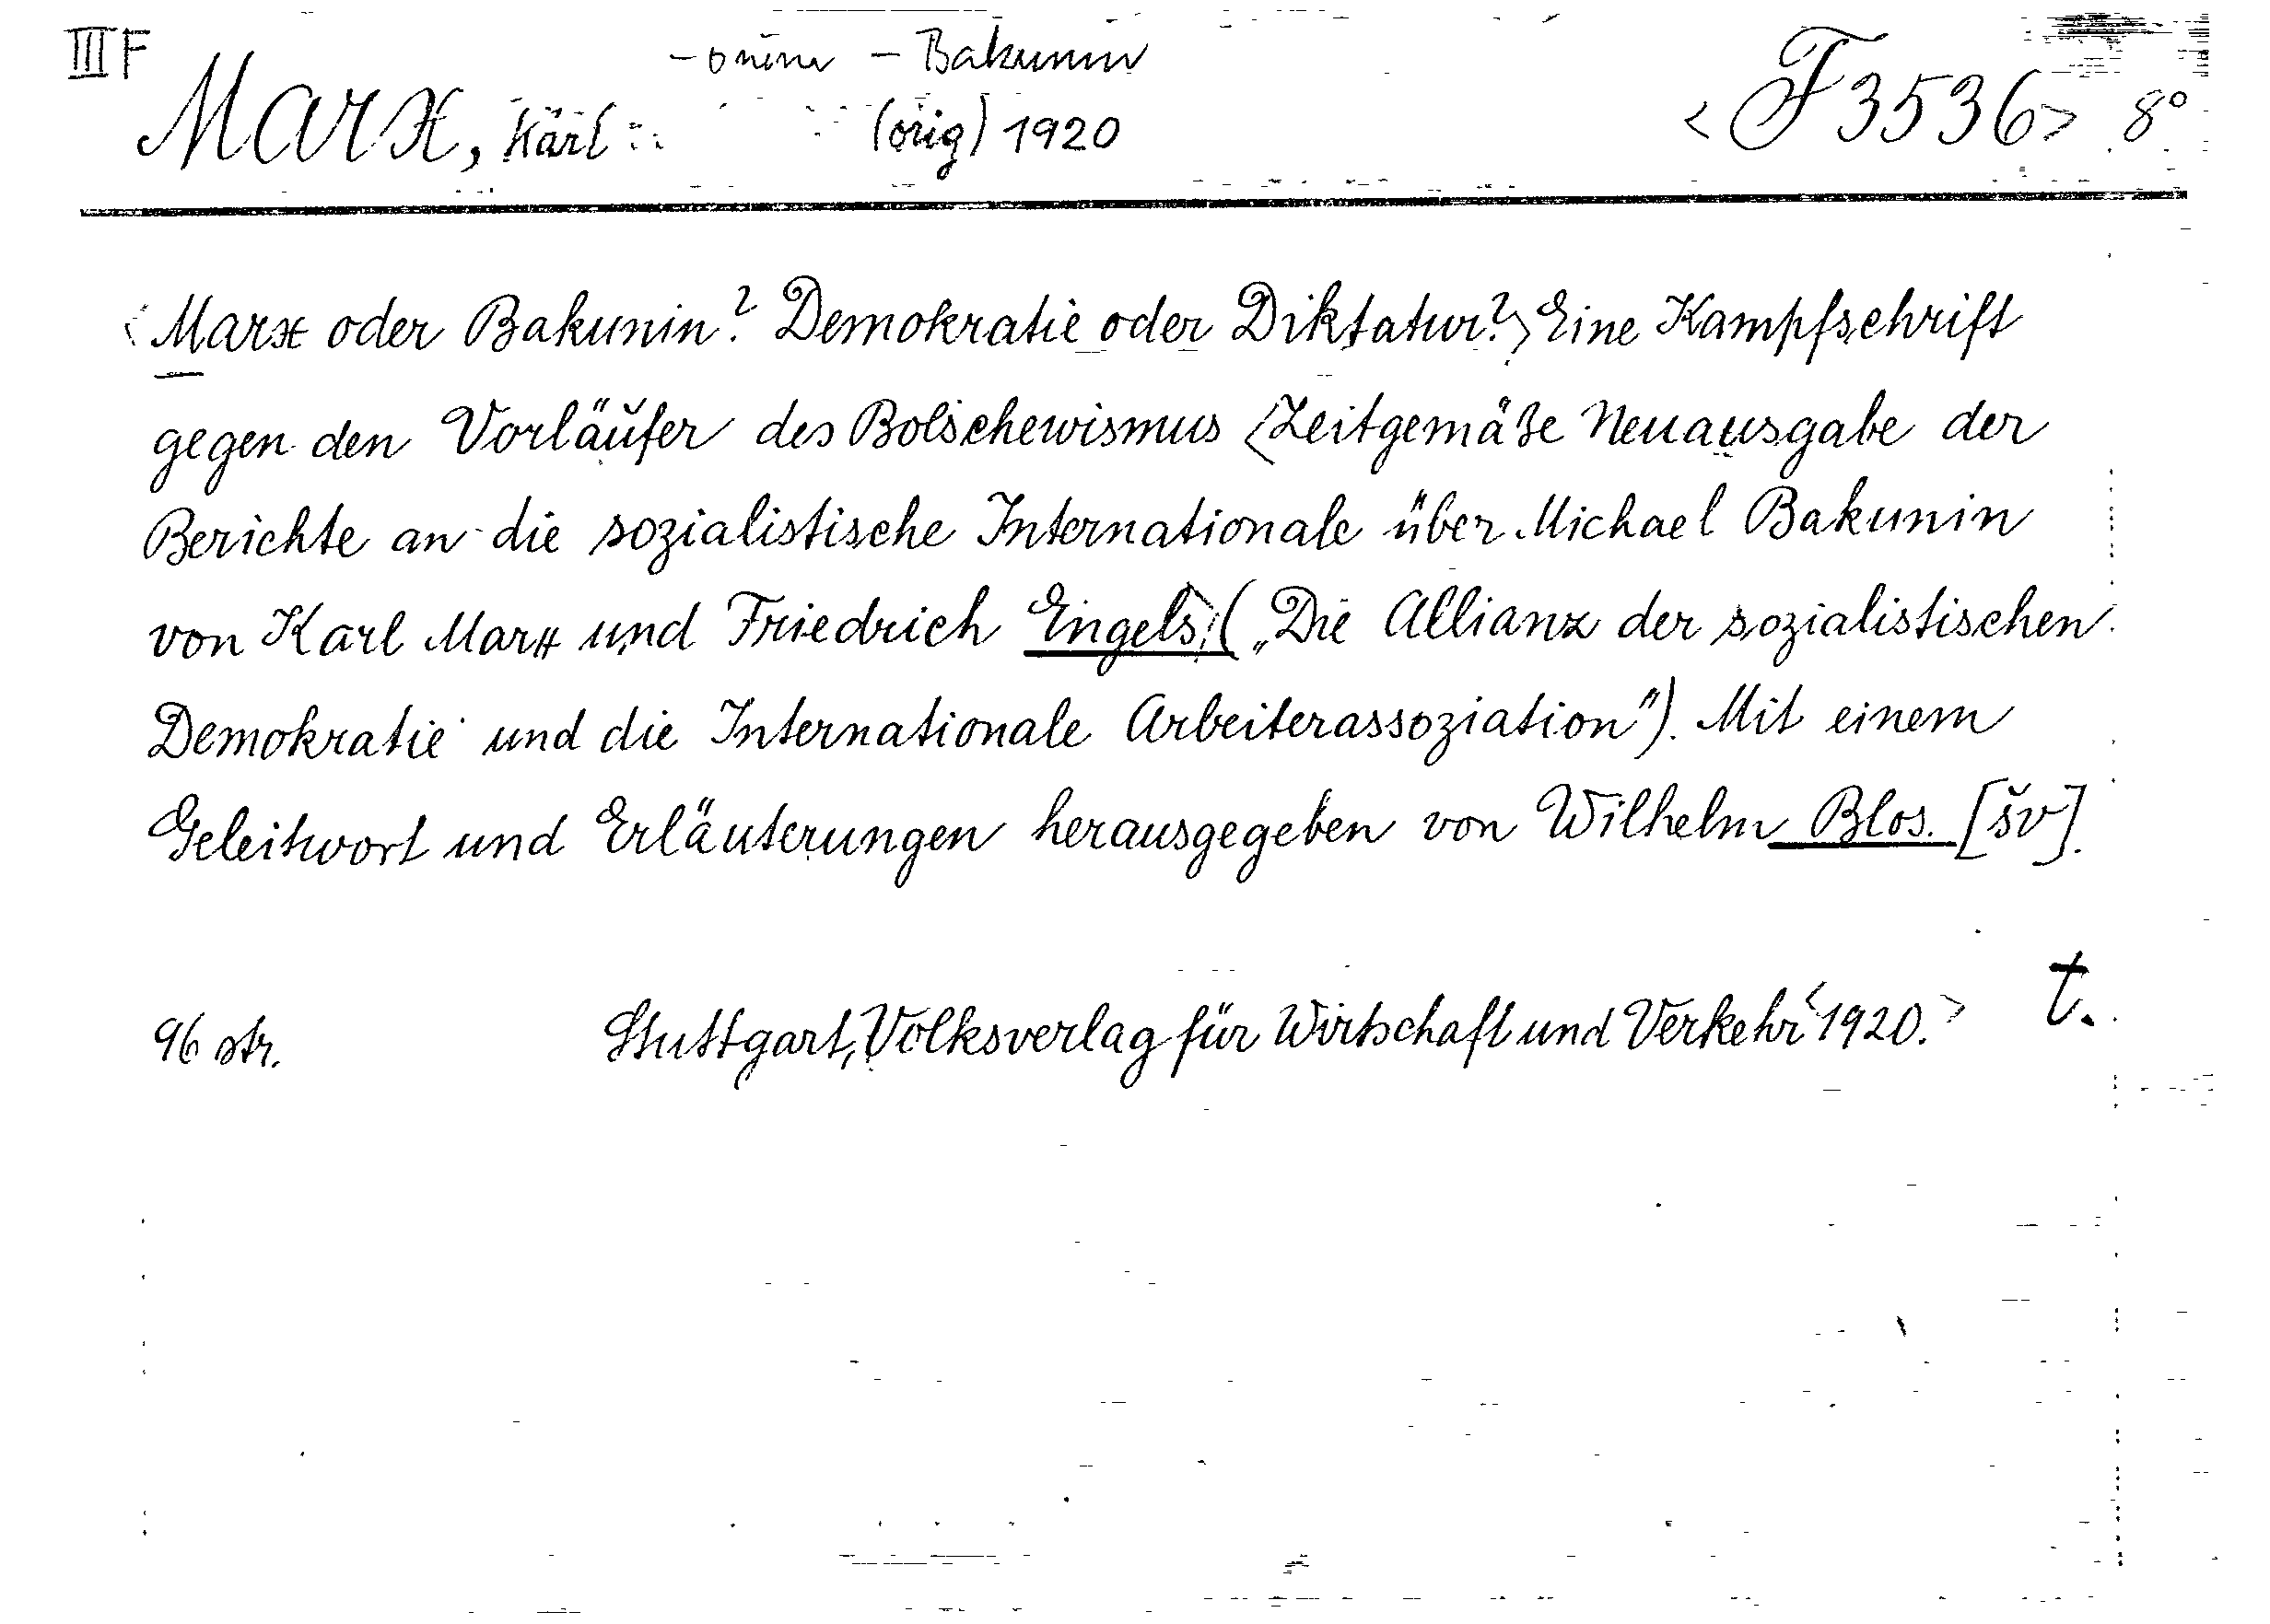 III F
- o něm - Bakunin
Marx, Karl (orig) 1920 <F 3536> 8°
<Marx oder Bakunin? Demokratie oder Diktatur?> Eine Kampfschrift
gegen den Vorläufer des Bolschewismus <Zeitgemäße Neuausgabe der
Berichte an die sozialistische Internationale über Michael Bakunin
von Karl Marx und Friedrich Engels> („Die Allianz der sozialistischen
Demokratie und die Internationale Arbeiterassoziation"). Mit einem
Geleitwort und Erläuterungen herausgegeben von Wilhelm Blos. [šv].
96 str. Stuttgart, Volksverlag für Wirtschaft und Verkehr <1920.> t.